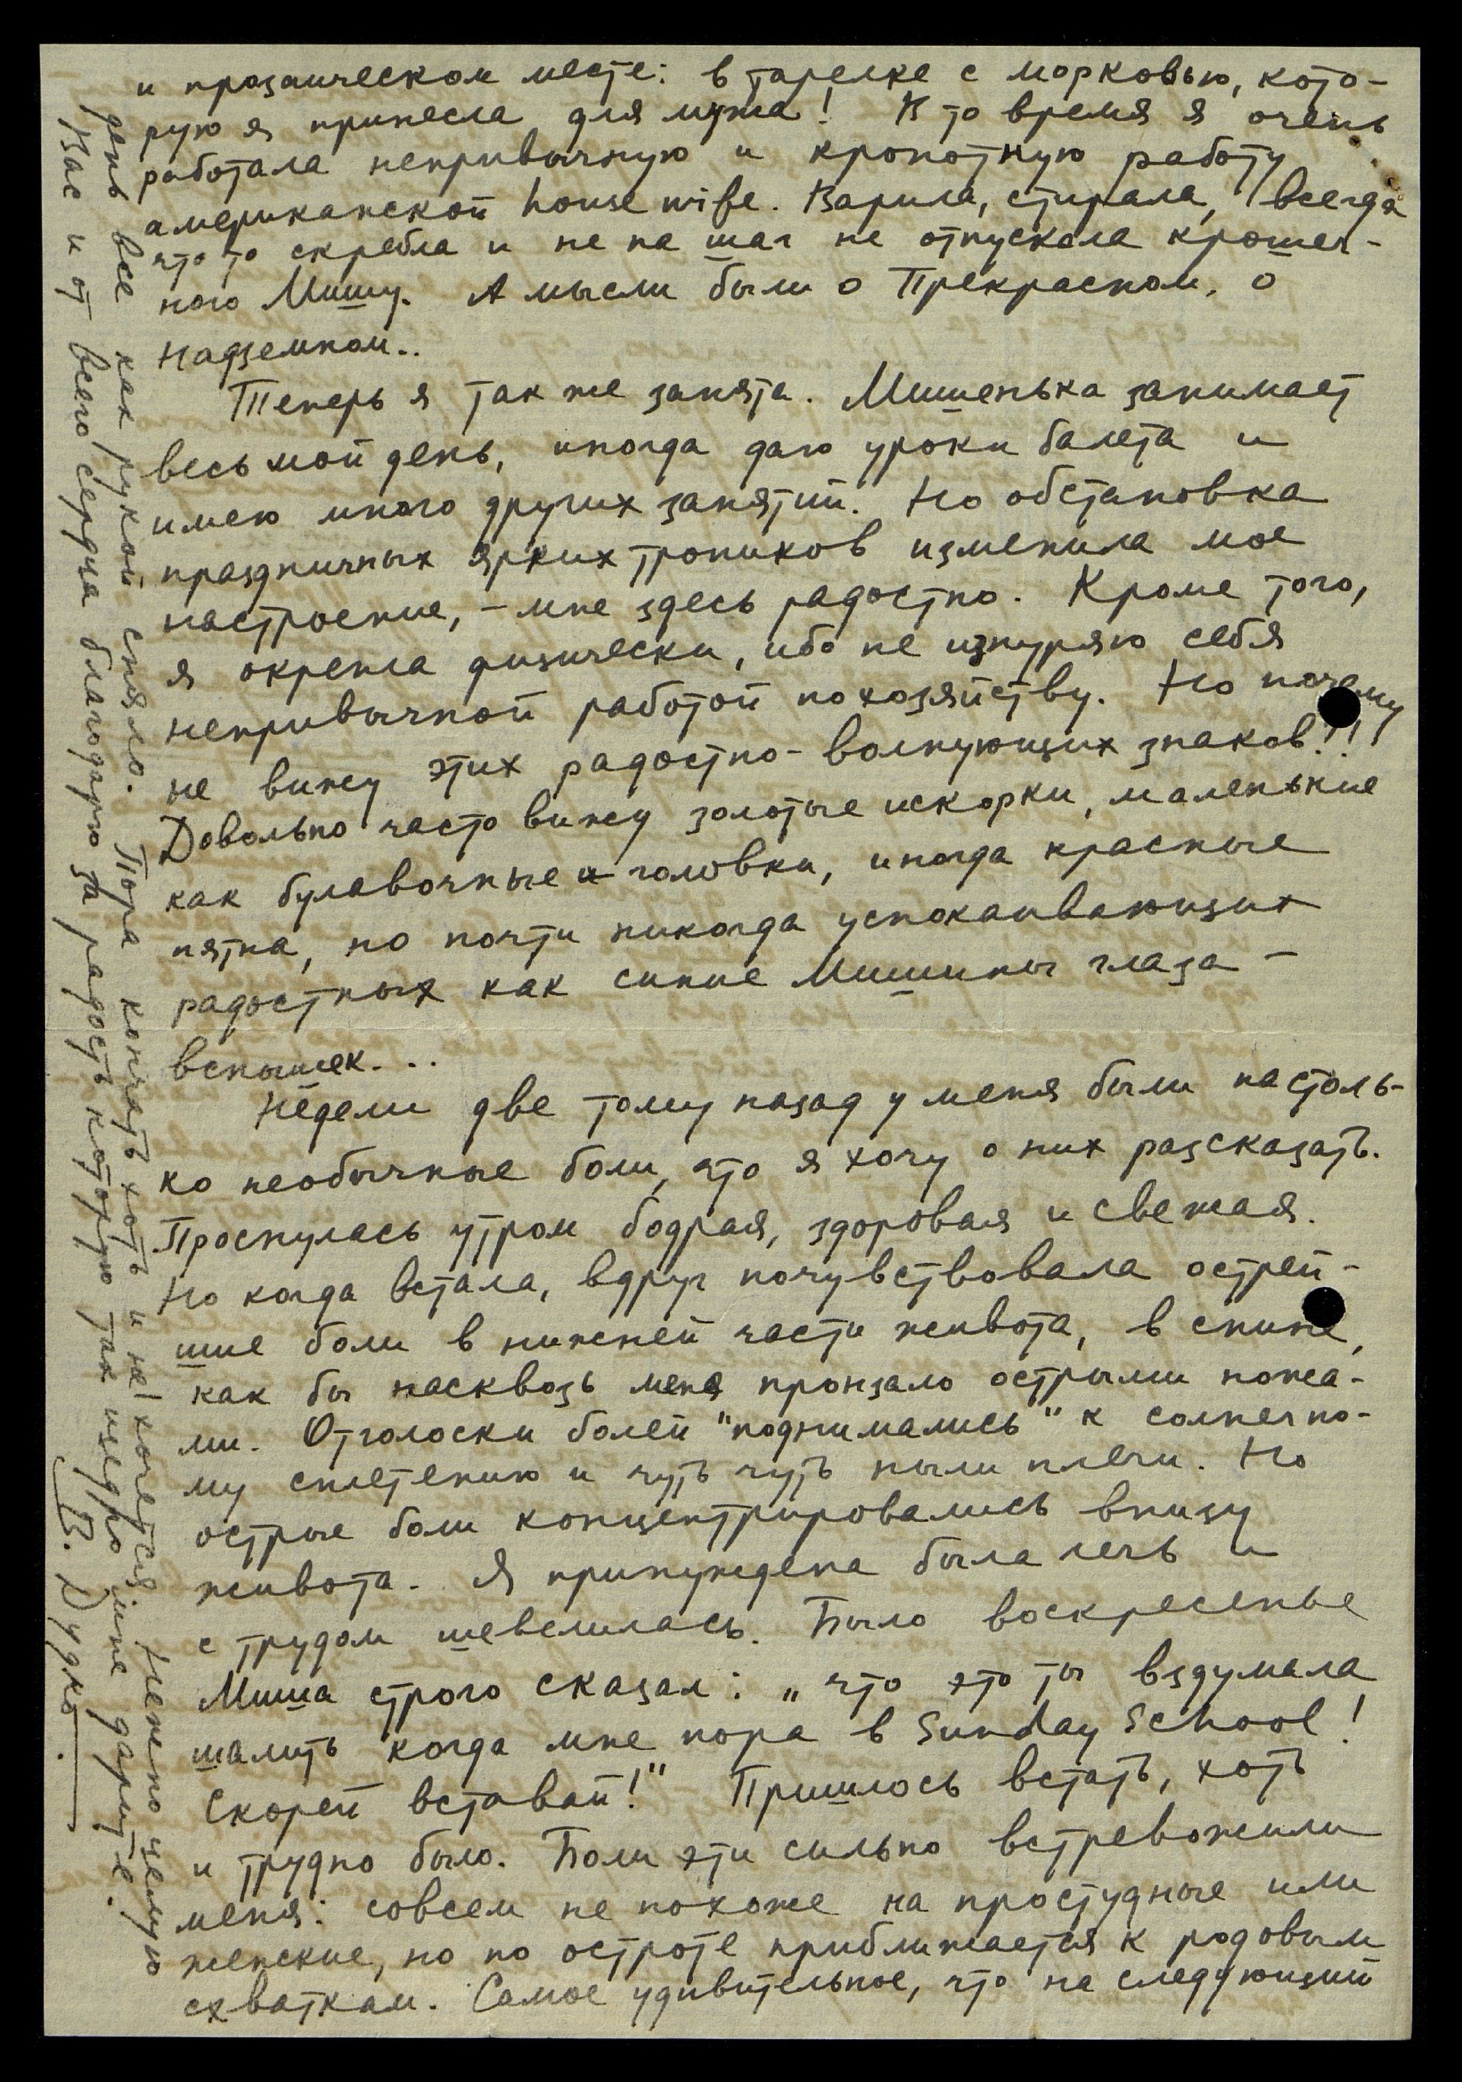 и прозаическом месте: в тарелке с морковью, кото-
рую я принесла для мужа! В то время я очень
работала непривычную и кропотную работу
американской house wife. Варила, стирала, всегда
что то скребла и не на шаг не отпускала крошеч-
ного Мишу. А мысли были о Прекрасном, о
Надземном..
Теперь я так же занята. Мишенька занимает
весь мой день, иногда даю уроки балета и
имею много других занятий. Но обстановка
праздничных ярких тропиков изменила мое
настроение, – мне здесь радостно. Кроме того,
я окрепла физически, ибо не изнуряю себя
непривычной работой по хозяйству. Но почему
не вижу этих радостно-волнующих знаков!!!
Довольно часто вижу золотые искорки, маленькие
как булавочные головки, иногда красные
пятна, но почти никогда успокаивающих
радостных как синие Мишины глаза –
вспышек...
Недели две тому назад у меня были настоль-
ко необычные боли, что я хочу о них разсказать.
Проснулась утром бодрая, здоровая и свежая.
Но когда встала, вдруг почувствовала острей-
шие боли в нижней части живота, в спине,
как бы насквозь меня пронзало острыми ножа-
ми. Отголоски болей "поднимались" к солнечно-
му сплетению и чуть чуть ныли плечи. Но
острые боли концентрировались внизу
живота. Я принуждена была лечь и
с трудом шевелилась. Было воскресенье
Миша строго сказал: „что это ты вздумала
шалить когда мне пора в Sunday School!
Скорей вставай!" Пришлось встать, хоть
и трудно было. Боли эти сильно встревожили
меня: совсем не похоже на простудные или
женские, но по остроте приближается к родовым
схваткам. Самое удивительное, что на следующий
день все как рукой сняло. Пора кончать хоть и не хочется. Нежно целую
Вас и от всего сердца благодарю за радость которую так щедро мне дарите.
В. Дудко.